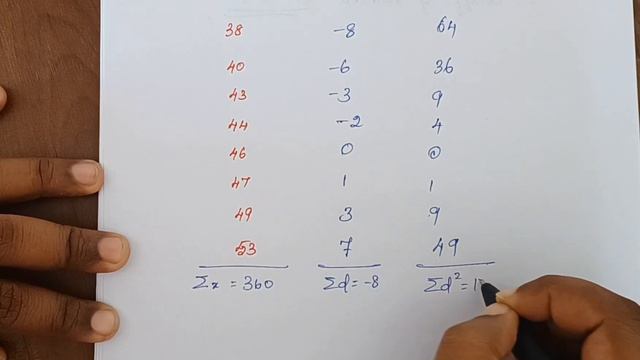 38 -8 64
40 -6 36
43 -3 9
44 -2 4
46 0 0
47 1 1
49 3 9
53 7 49
Σx = 360 Σd = -8 Σd² = 1